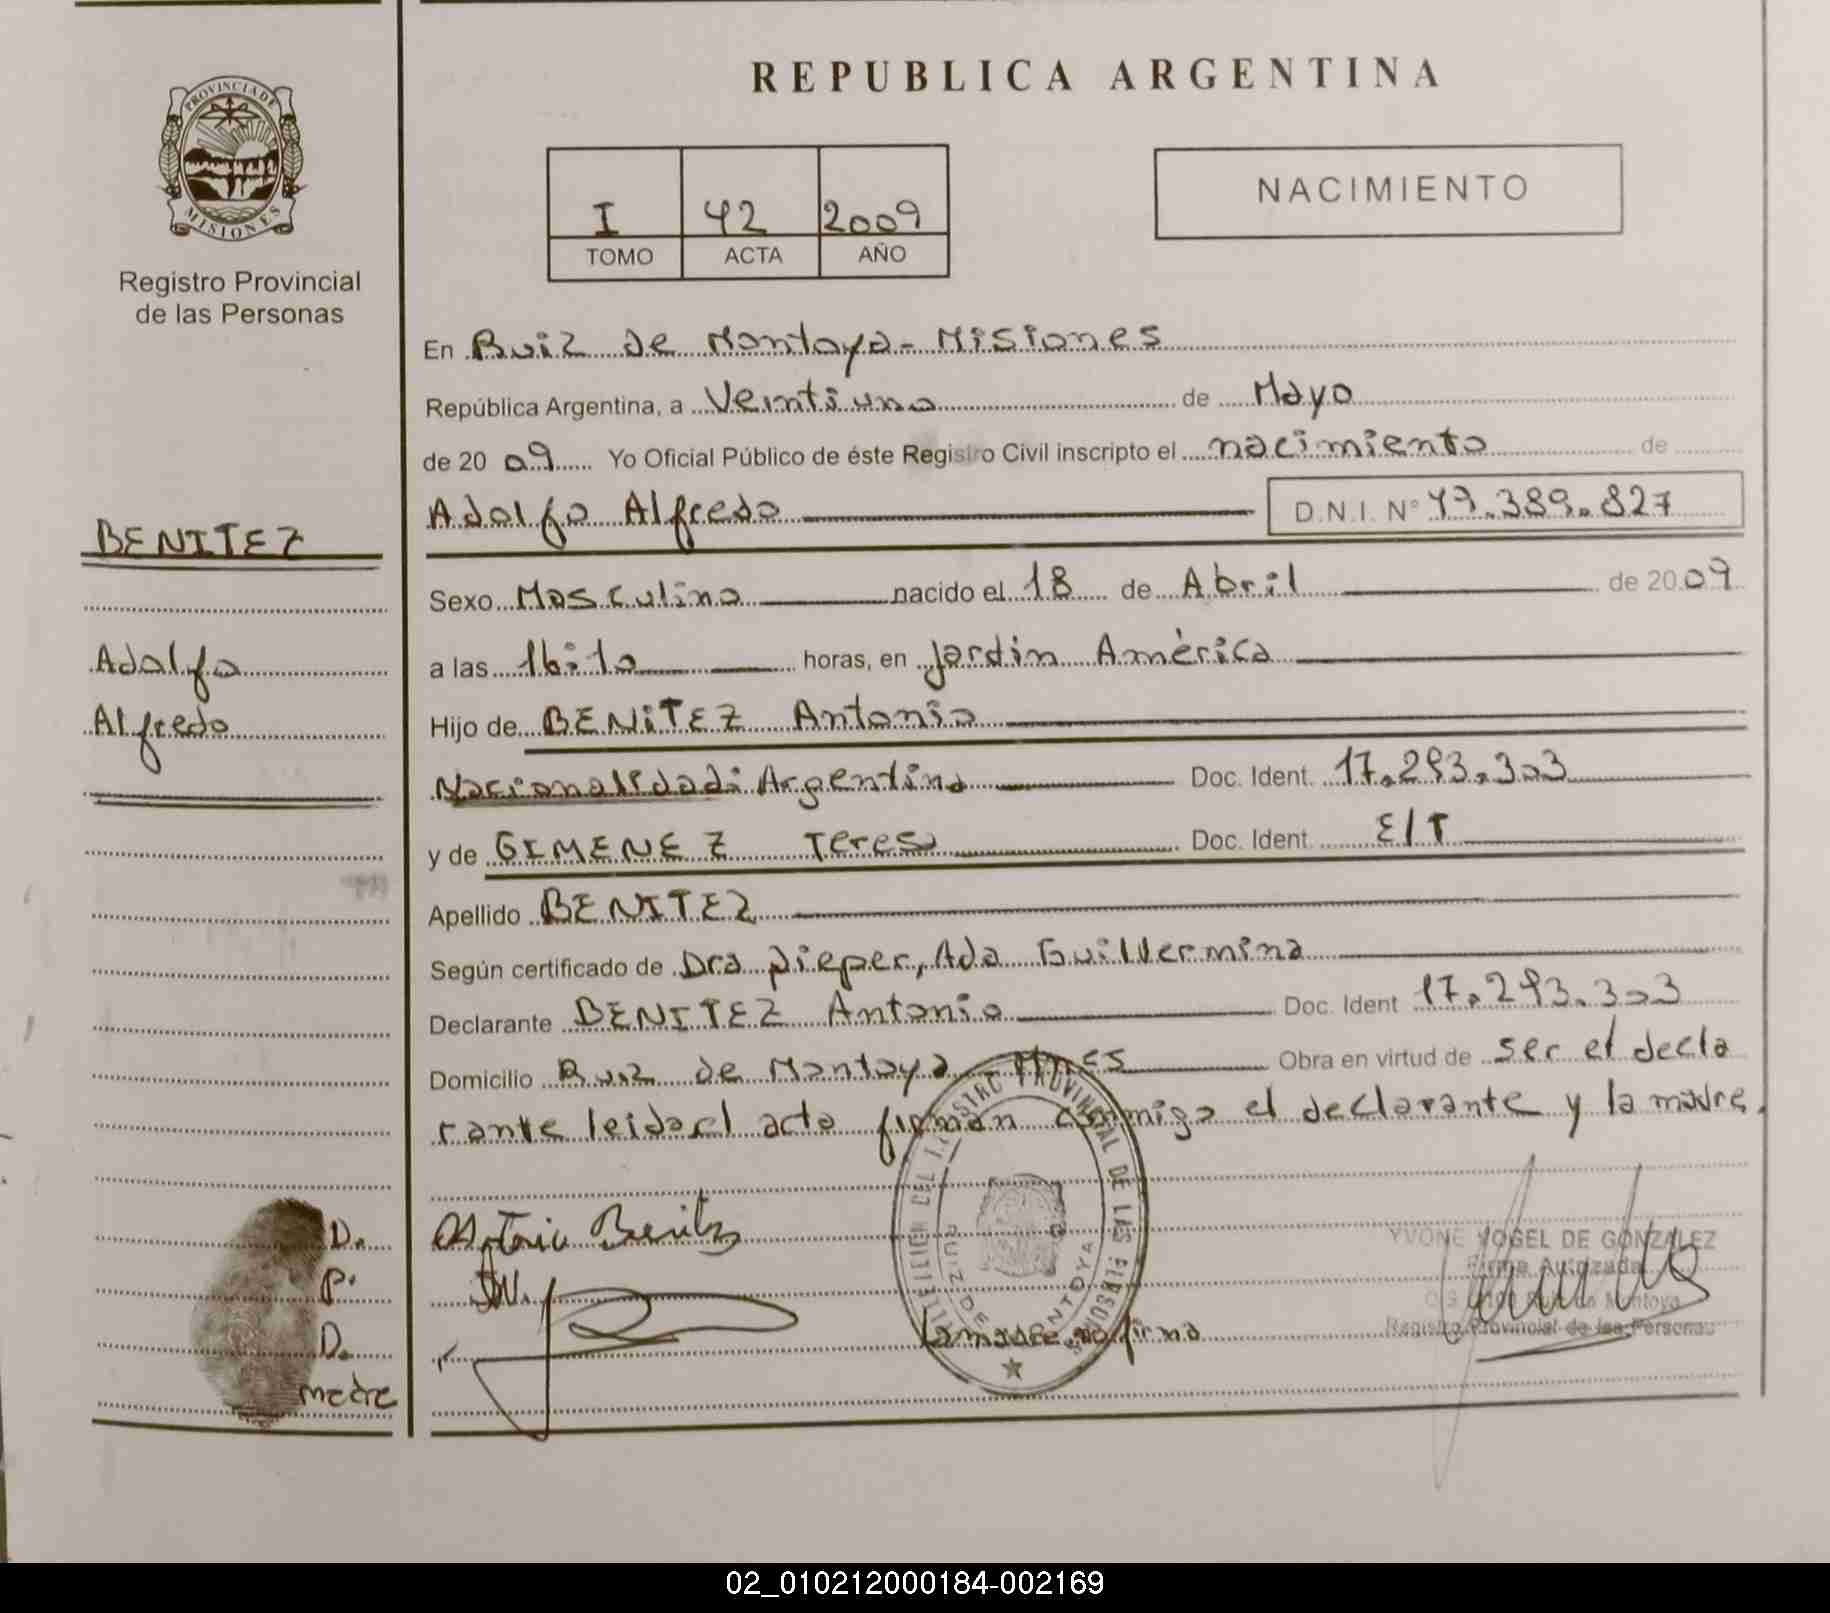 REPUBLICA ARGENTINA
PROVINCIA DE MISIONES
Registro Provincial
de las Personas
I 42 2009
TOMO ACTA AÑO
NACIMIENTO
En Ruiz de Montoya - Misiones
República Argentina, a Veintiuno de Mayo
de 20 09 Yo Oficial Público de éste Registro Civil inscripto el nacimiento de
Adolfo Alfredo D.N.I. Nº 49.389.827
BENITEZ
Adolfo
Alfredo
Sexo Masculino nacido el 18 de Abril de 2009
a las 16:10 horas, en Jardín América
Hijo de BENITEZ Antonio
Nacionalidad: Argentina Doc. Ident. 17.293.303
y de GIMENEZ Teresa Doc. Ident. E/T
Apellido BENITEZ
Según certificado de Dra Dieper, Ada Guillermina
Declarante BENITEZ Antonio Doc. Ident 17.293.303
Domicilio Ruiz de Montoya Mnes Obra en virtud de ser el decla
rante leida el acta firman conmigo el declarante y la madre.
D.
P.
D.
madre
Antonio Benitez
La madre no firma
REGISTRO PROVINCIAL DE LAS PERSONAS
RUIZ DE MONTOYA
YVONE VOGEL DE GONZALEZ
Firma Autorizada
Ruiz de Montoya
Registro Provincial de las Personas
02_010212000184-002169